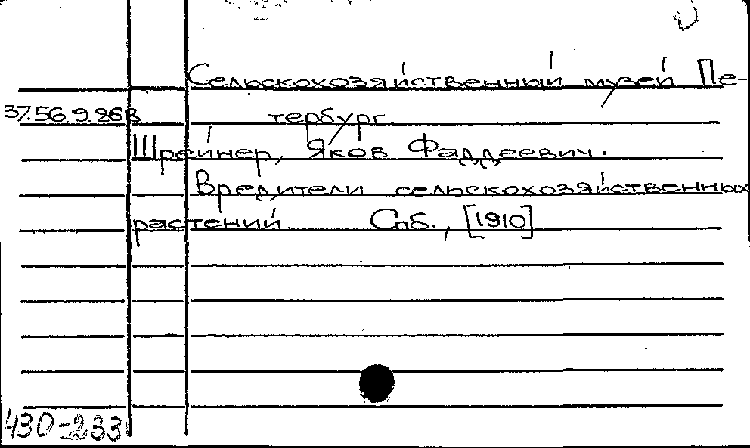 Сельскохозяйственный музей Пе-
37.56.9.26В тербург.
Шрейнер, Яков Фаддеевич.
Вредители сельскохозяйственных
растений Спб., [1910]
430-233